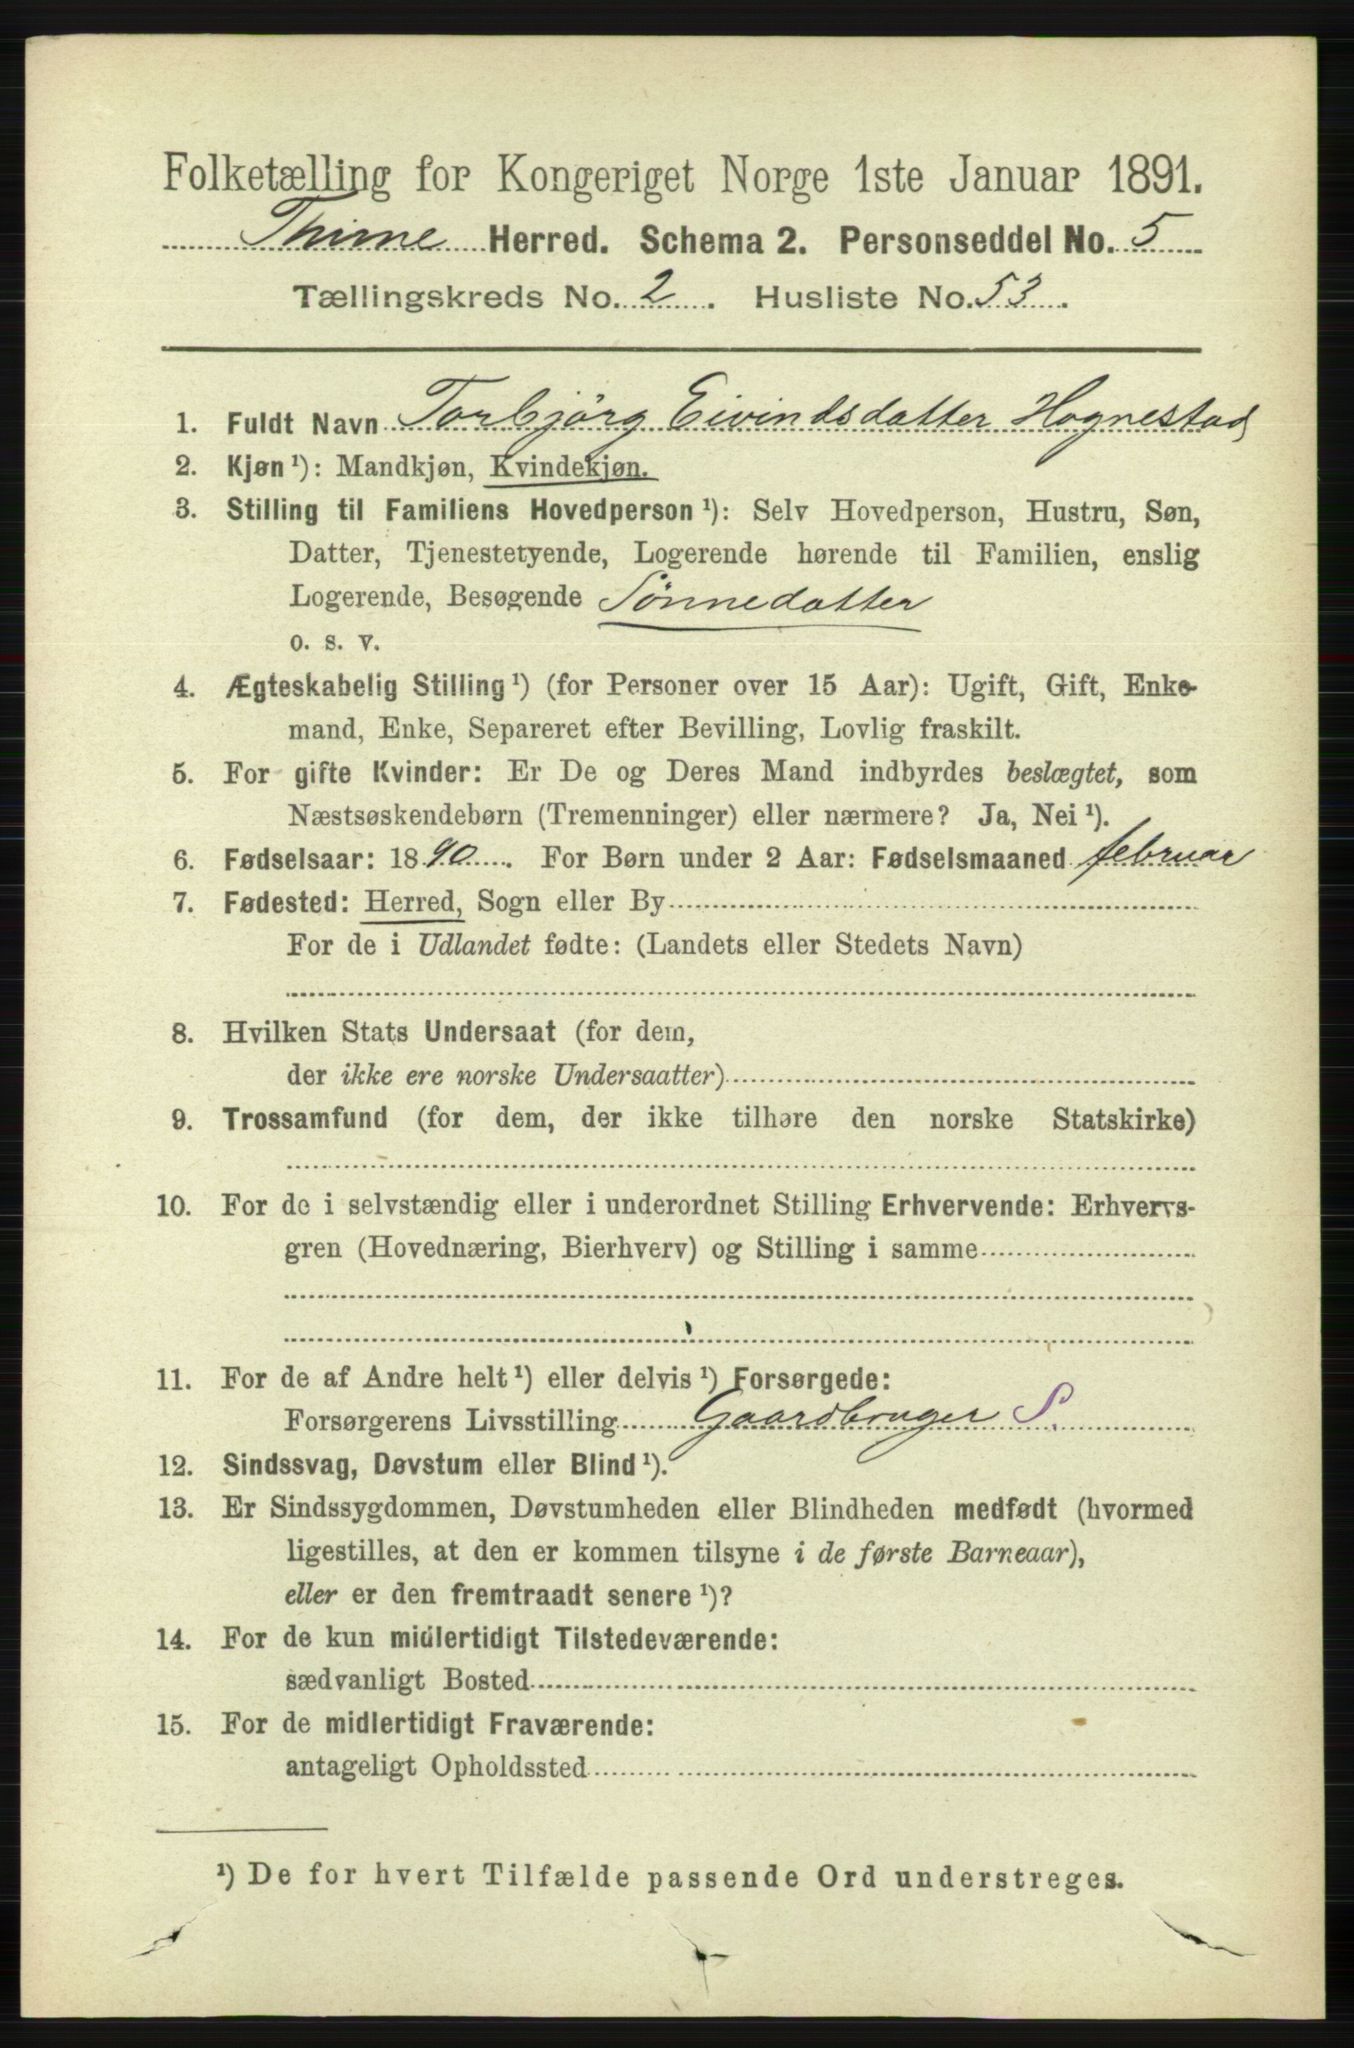 Folketælling for Kongeriget Norge 1ste Januar 1891.
Thime Herred. Schema 2. Personseddel No. 5
Tællingskreds No. 2. Husliste No. 53.
1. Fuldt Navn Torbjörg Eivindsdatter Hognestad
2. Kjøn¹): Mandkjøn, Kvindekjøn.
3. Stilling til Familiens Hovedperson¹): Selv Hovedperson, Hustru, Søn,
Datter, Tjenestetyende, Logerende hørende til Familien, enslig
Logerende, Besøgende Sönnedatter
o. s. v.
4. Ægteskabelig Stilling¹) (for Personer over 15 Aar): Ugift, Gift, Enke-
mand, Enke, Separeret efter Bevilling, Lovlig fraskilt.
5. For gifte Kvinder: Er De og Deres Mand indbyrdes beslægtet, som
Næstsøskendebørn (Tremenninger) eller nærmere? Ja, Nei¹).
6. Fødselsaar: 1890. For Børn under 2 Aar: Fødselsmaaned februar
7. Fødested: Herred, Sogn eller By
For de i Udlandet fødte: (Landets eller Stedets Navn)
8. Hvilken Stats Undersaat (for dem,
der ikke ere norske Undersaatter)
9. Trossamfund (for dem, der ikke tilhøre den norske Statskirke)
10. For de i selvstændig eller i underordnet Stilling Erhvervende: Erhvervs-
gren (Hovednæring, Bierhverv) og Stilling i samme
11. For de af Andre helt¹) eller delvis¹) Forsørgede:
Forsørgerens Livsstilling Gaardbruger S.
12. Sindssvag, Døvstum eller Blind¹).
13. Er Sindssygdommen, Døvstumheden eller Blindheden medfødt (hvormed
ligestilles, at den er kommen tilsyne i de første Barneaar),
eller er den fremtraadt senere¹)?
14. For de kun midlertidigt Tilstedeværende:
sædvanligt Bosted
15. For de midlertidigt Fraværende:
antageligt Opholdssted
¹) De for hvert Tilfælde passende Ord understreges.